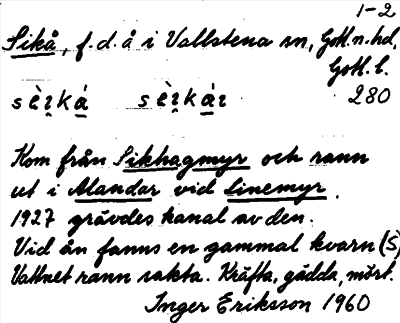 1-2
Sikå, f.d. å i Vallstena sn, Gotl.n.hd,
Gotl. l.
280
Kom från Sikhagmyr och rann
ut i Alandar vid Linemyr.
1927 grävdes kanal av den.
Vid ån fanns en gammal kvarn (S)
Vattnet rann sakta. Kräfta, gädda, mört.
Inger Eriksson 1960